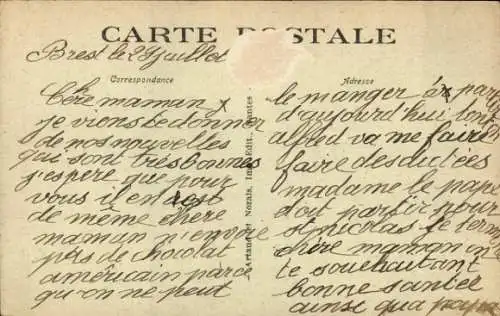 CARTE POSTALE
Brest le 29 juillet
Correspondance
Chère maman
je viens te donner
de nos nouvelles
qui sont très bonnes
j'espère que pour
vous il en est
de même chère
maman n'envoie
pas de chocolat
américain parce
qu'on ne peut
Artaud et Nozais, Imp.-Edit., Nantes
Adresse
le manger à par
d'aujourd'hui
alfred va me faire
faire des
madame le
doit partir pour
st nicolas je
chère maman en
te souhaitant
bonne santée
ainsi qua papa